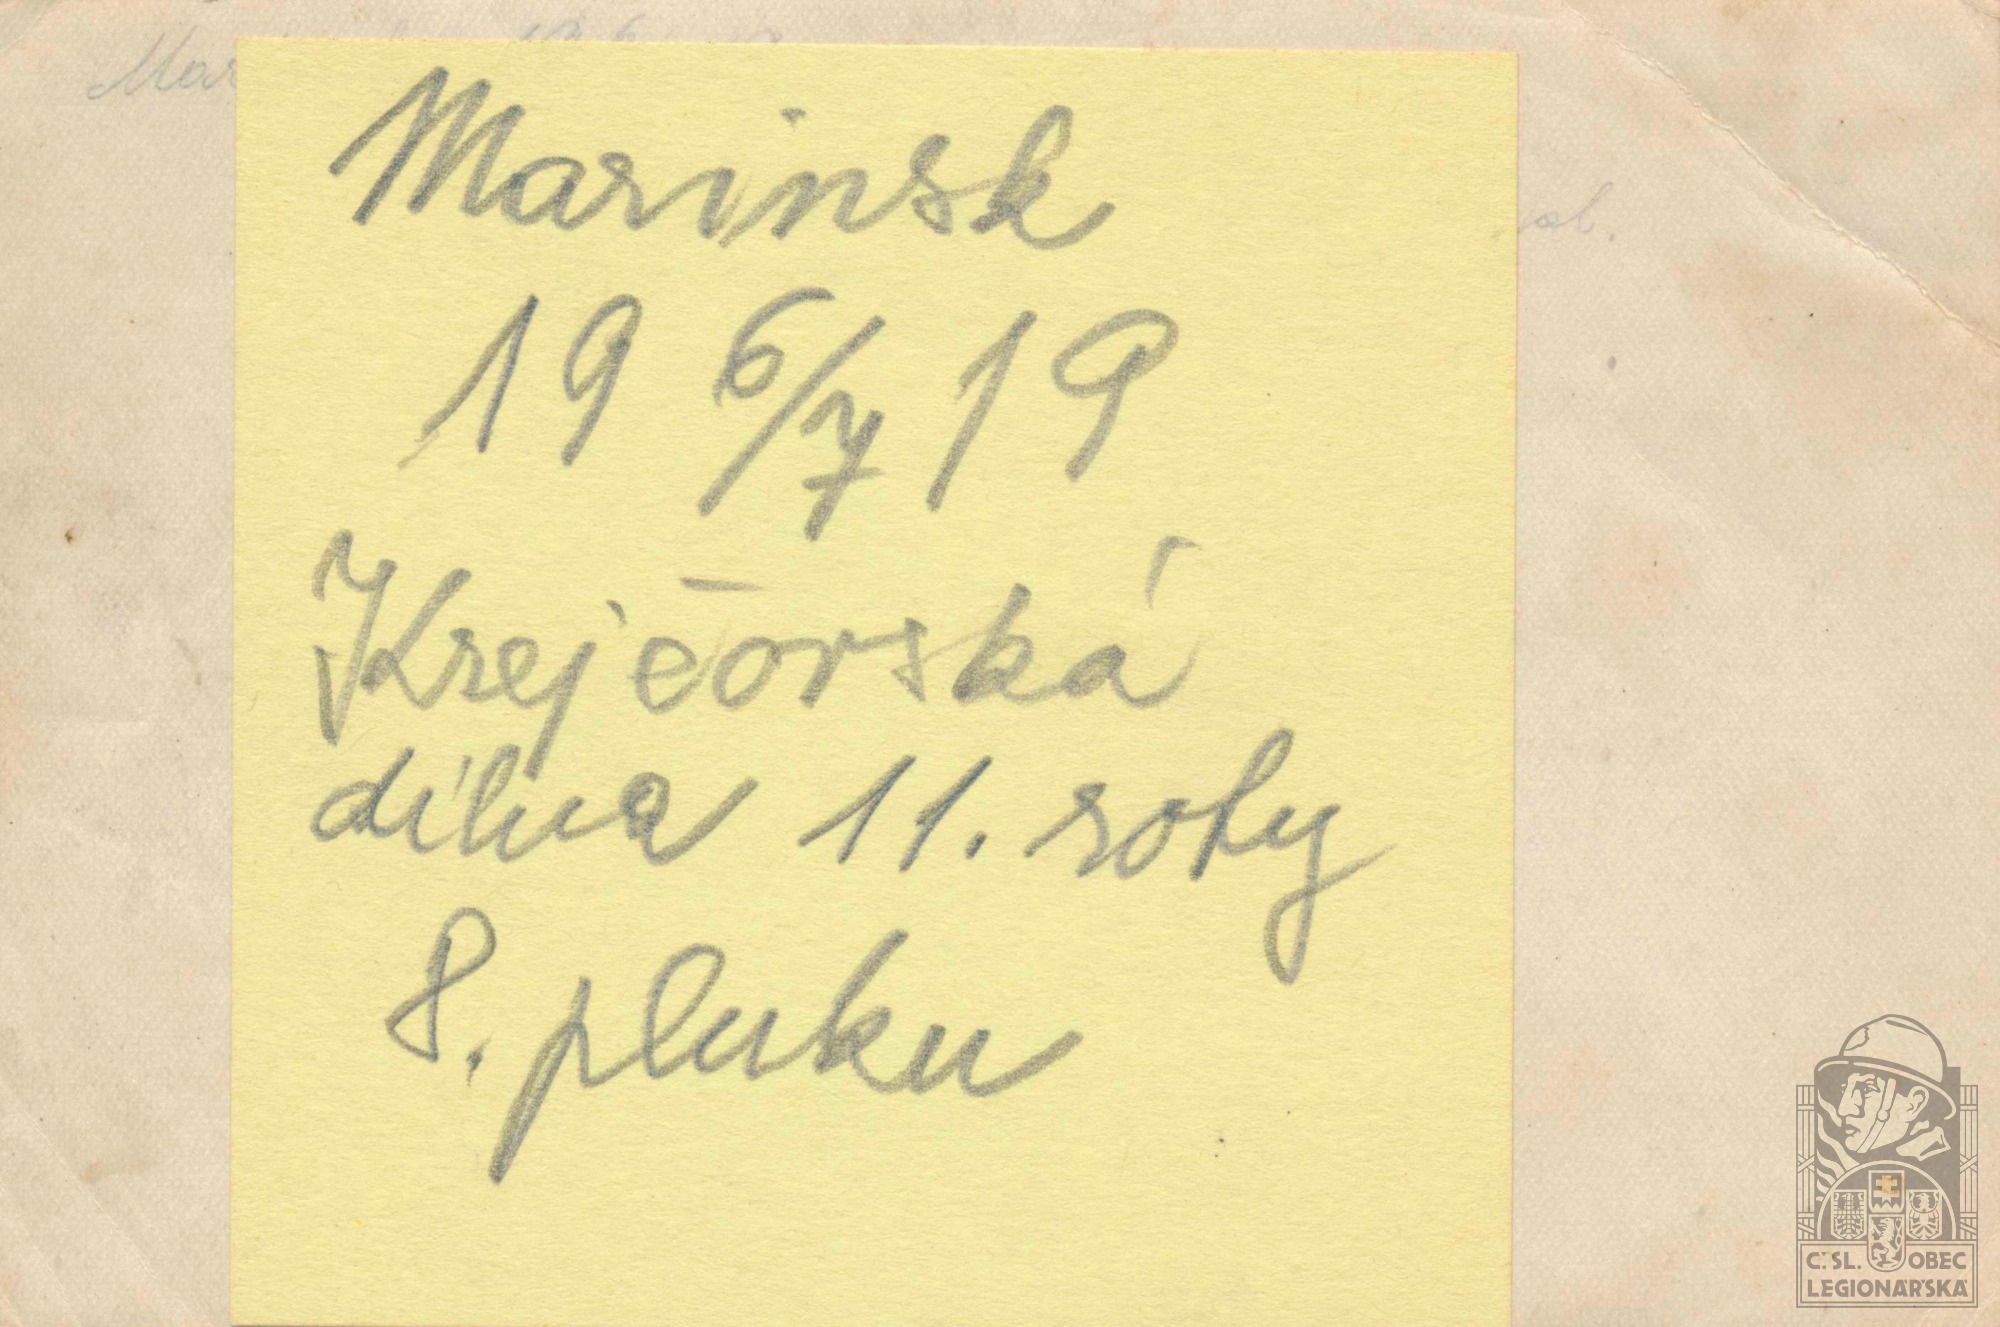 Marinsk
19 6/7 19
Krejčovská
dílna 11. roty
8. pluku
Č.SL. OBEC
LEGIONÁŘSKÁ